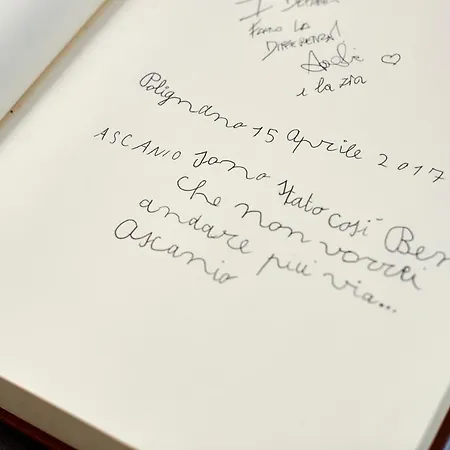 I DETTAGLI
FANNO LA
DIFFERENZA!
e la zia
Polignano 15 aprile 2017
ASCANIO sono stato così Ben
che non vorrei
andare più via...
Ascanio